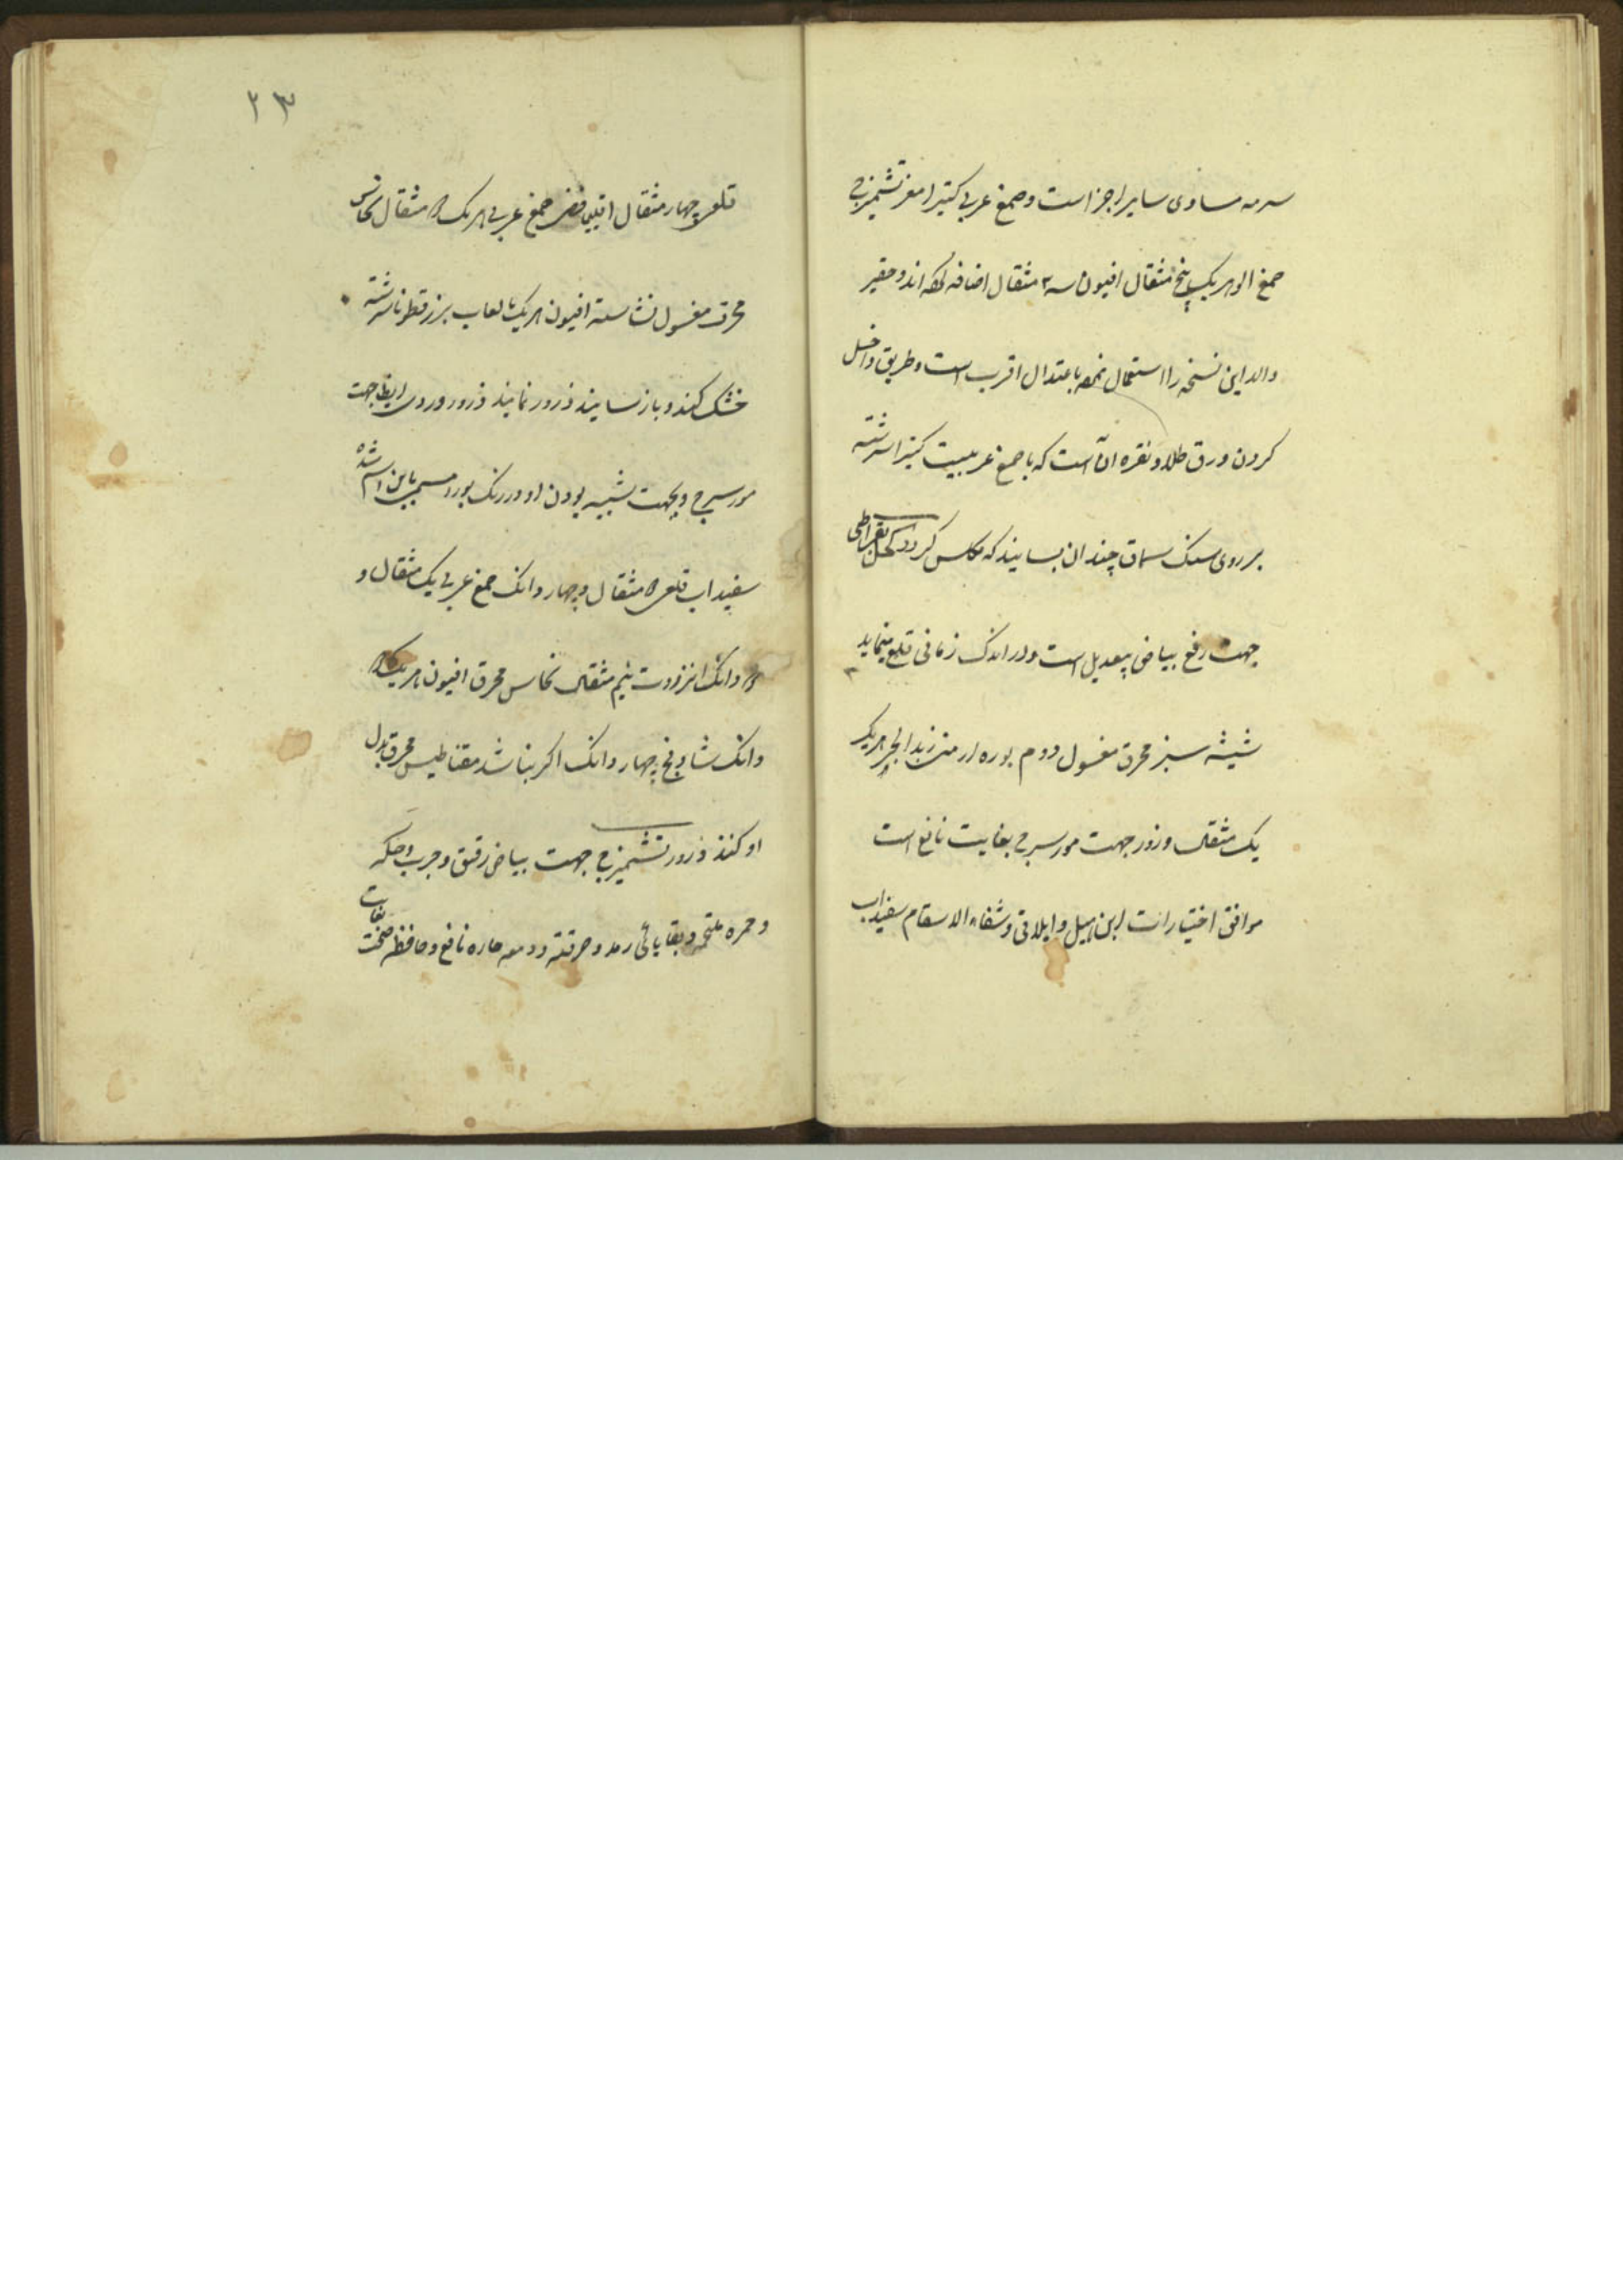 سرمه مساوی سایر اجزاست و صمغ عربی کتیرا مغز تشمیزج
صمغ الو هر یک پنج مثقال افیون سه ۳ مثقال اضافه کرده اند و حقیر
والد این نسخه را استعمال نموده باعتدال اقرب است و طریق داخل
کردن ورق طلا و نقره آن است که با صمغ عربیست کتیرا سرشته
بر روی سنک سماق چندان بسایند که مکلس کردد کحل بقراطی
جهت رفع بیاض بیعدیل است و در اندک زمانی قلع مینماید
شیشه سبز محرق مغسول دوم بوره ارمنی زبد البحر هر یک
یک مثقال وزور جهت مورسرج بغایت نافع است
موافق اختیارات ابن هبل و ایلاقی و شفاء الاسقام سفیداب
۲۳
قلعی چهار مثقال اقلیمیا فضی صمغ عربی هر یک مثقال نحاس
محرق مغسول نشاسته افیون هر یک بالعاب بزرقطونا سرشته
خشک کنند و باز بسایند ذرور نمایند ذرور وردی ایضا جهت
مورسرج و بجهت شبیه بودن او در رنک بورد مسمی باین اسم شده
سفیداب قلعی مثقال و چهار دانک صمغ عربی یک مثقال و
دانک انزروت نیم مثقال نحاس محرق افیون هر یک
دانک شادنج چهار دانک اکر نباشد مقناطیس محرق بدل
او کنند ذرور تشمیزج جهت بیاض رقیق و جرب و حکه
و حمره ملتحمه و بقایائی رمد و حرقته و دمعه حاره نافع و حافظ صحت بغایت